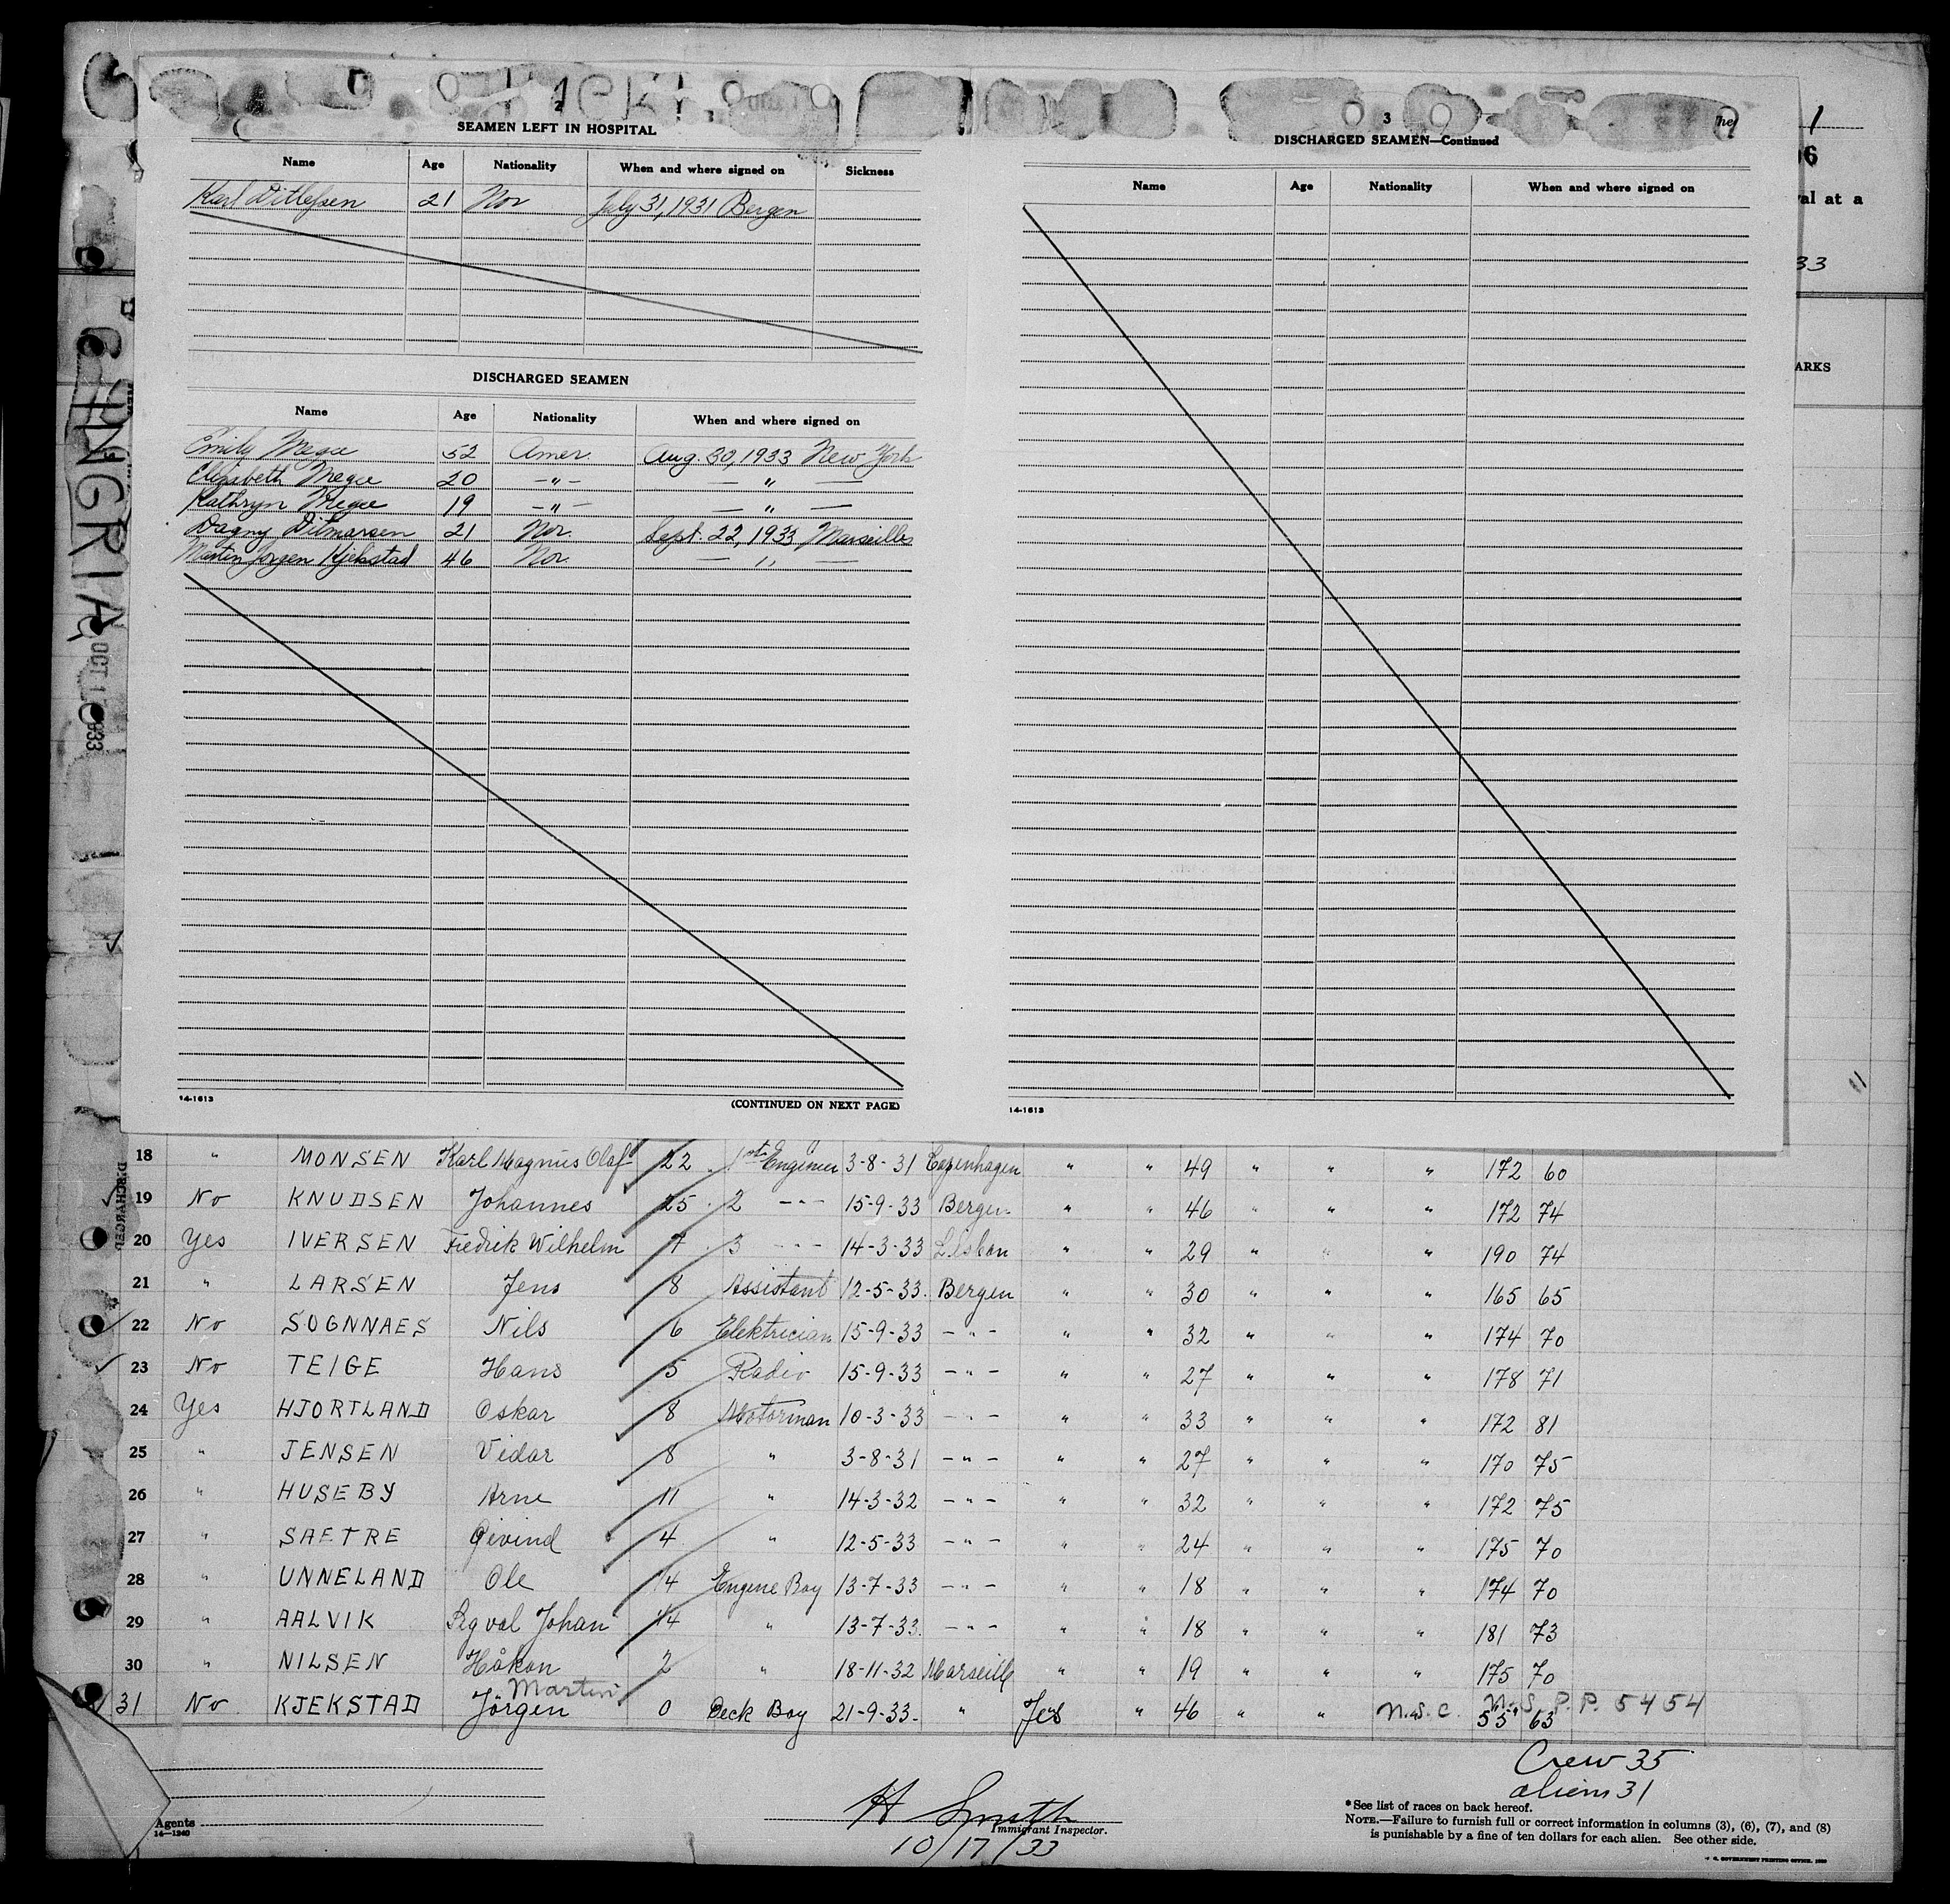 2
SEAMEN LEFT IN HOSPITAL
Name Age Nationality When and where signed on Sickness
Karl Ditlefsen 21 Nor July 31, 1931 Bergen
DISCHARGED SEAMEN
Name Age Nationality When and where signed on
Emily Megee 52 Amer. Aug. 30, 1933 New York
Elizabeth Megee 20 -"- — " —
Kathryn Megee 19 -"- — " —
Dagny Ditmarsen 21 Nor. Sept. 22, 1933 Marseilles
Martin Jorgen Kjekstad 46 Nor. — " —
14-1613
(CONTINUED ON NEXT PAGE)
3
DISCHARGED SEAMEN—Continued
Name Age Nationality When and where signed on
14-1613
1
96
val at a
33
ARKS
INGRIA
OCT 1 1933
DISCHARGED
18 " MONSEN Karl Magnus Olaf 22 1st Engineer 3-8-31 Copenhagen " " 49 " " " 172 60
19 No KNUDSEN Johannes 25 2 --- 15-9-33 Bergen " " 46 " " " 172 74
20 Yes IVERSEN Fredrik Wilhelm 7 3 --- 14-3-33 Lisbon " " 29 " " " 190 74
21 " LARSEN Jens 8 Assistant 12-5-33. Bergen " " 30 " " " 165 65
22 No SOGNNAES Nils 6 Elektrician 15-9-33 -"- " " 32 " " " 174 70
23 No TEIGE Hans 5 Radio 15-9-33 -"- " " 27 " " " 178 71
24 Yes HJORTLAND Oskar 8 Motorman 10-3-33 -"- " " 33 " " " 172 81
25 " JENSEN Vidar 8 " 3-8-31 -"- " " 27 " " " 170 75
26 " HUSEBY Arne 11 " 14-3-32 -"- " " 32 " " " 172 75
27 " SAETRE Øivind 4 " 12-5-33 -"- " " 24 " " " 175 70
28 " UNNELAND Ole 14 Engine Boy 13-7-33 -"- " " 18 " " " 174 70
29 " AALVIK Sigval Johan 14 " 13-7-33. -"- " " 18 " " " 181 73
30 " NILSEN Håkon 2 " 18-11-32 Marseille " " 19 " " " 175 70
31 31 No KJEKSTAD Jörgen Martin 0 Deck Boy 21-9-33. " Yes " 46 " " N.S.C. N.S.P.P. 5454
55" 63
Crew 35
aliens 31
H Smith
Immigrant Inspector.
10/17/33
Agents
14—1240
*See list of races on back hereof.
NOTE.—Failure to furnish full or correct information in columns (3), (6), (7), and (8)
is punishable by a fine of ten dollars for each alien. See other side.
GOVERNMENT PRINTING OFFICE